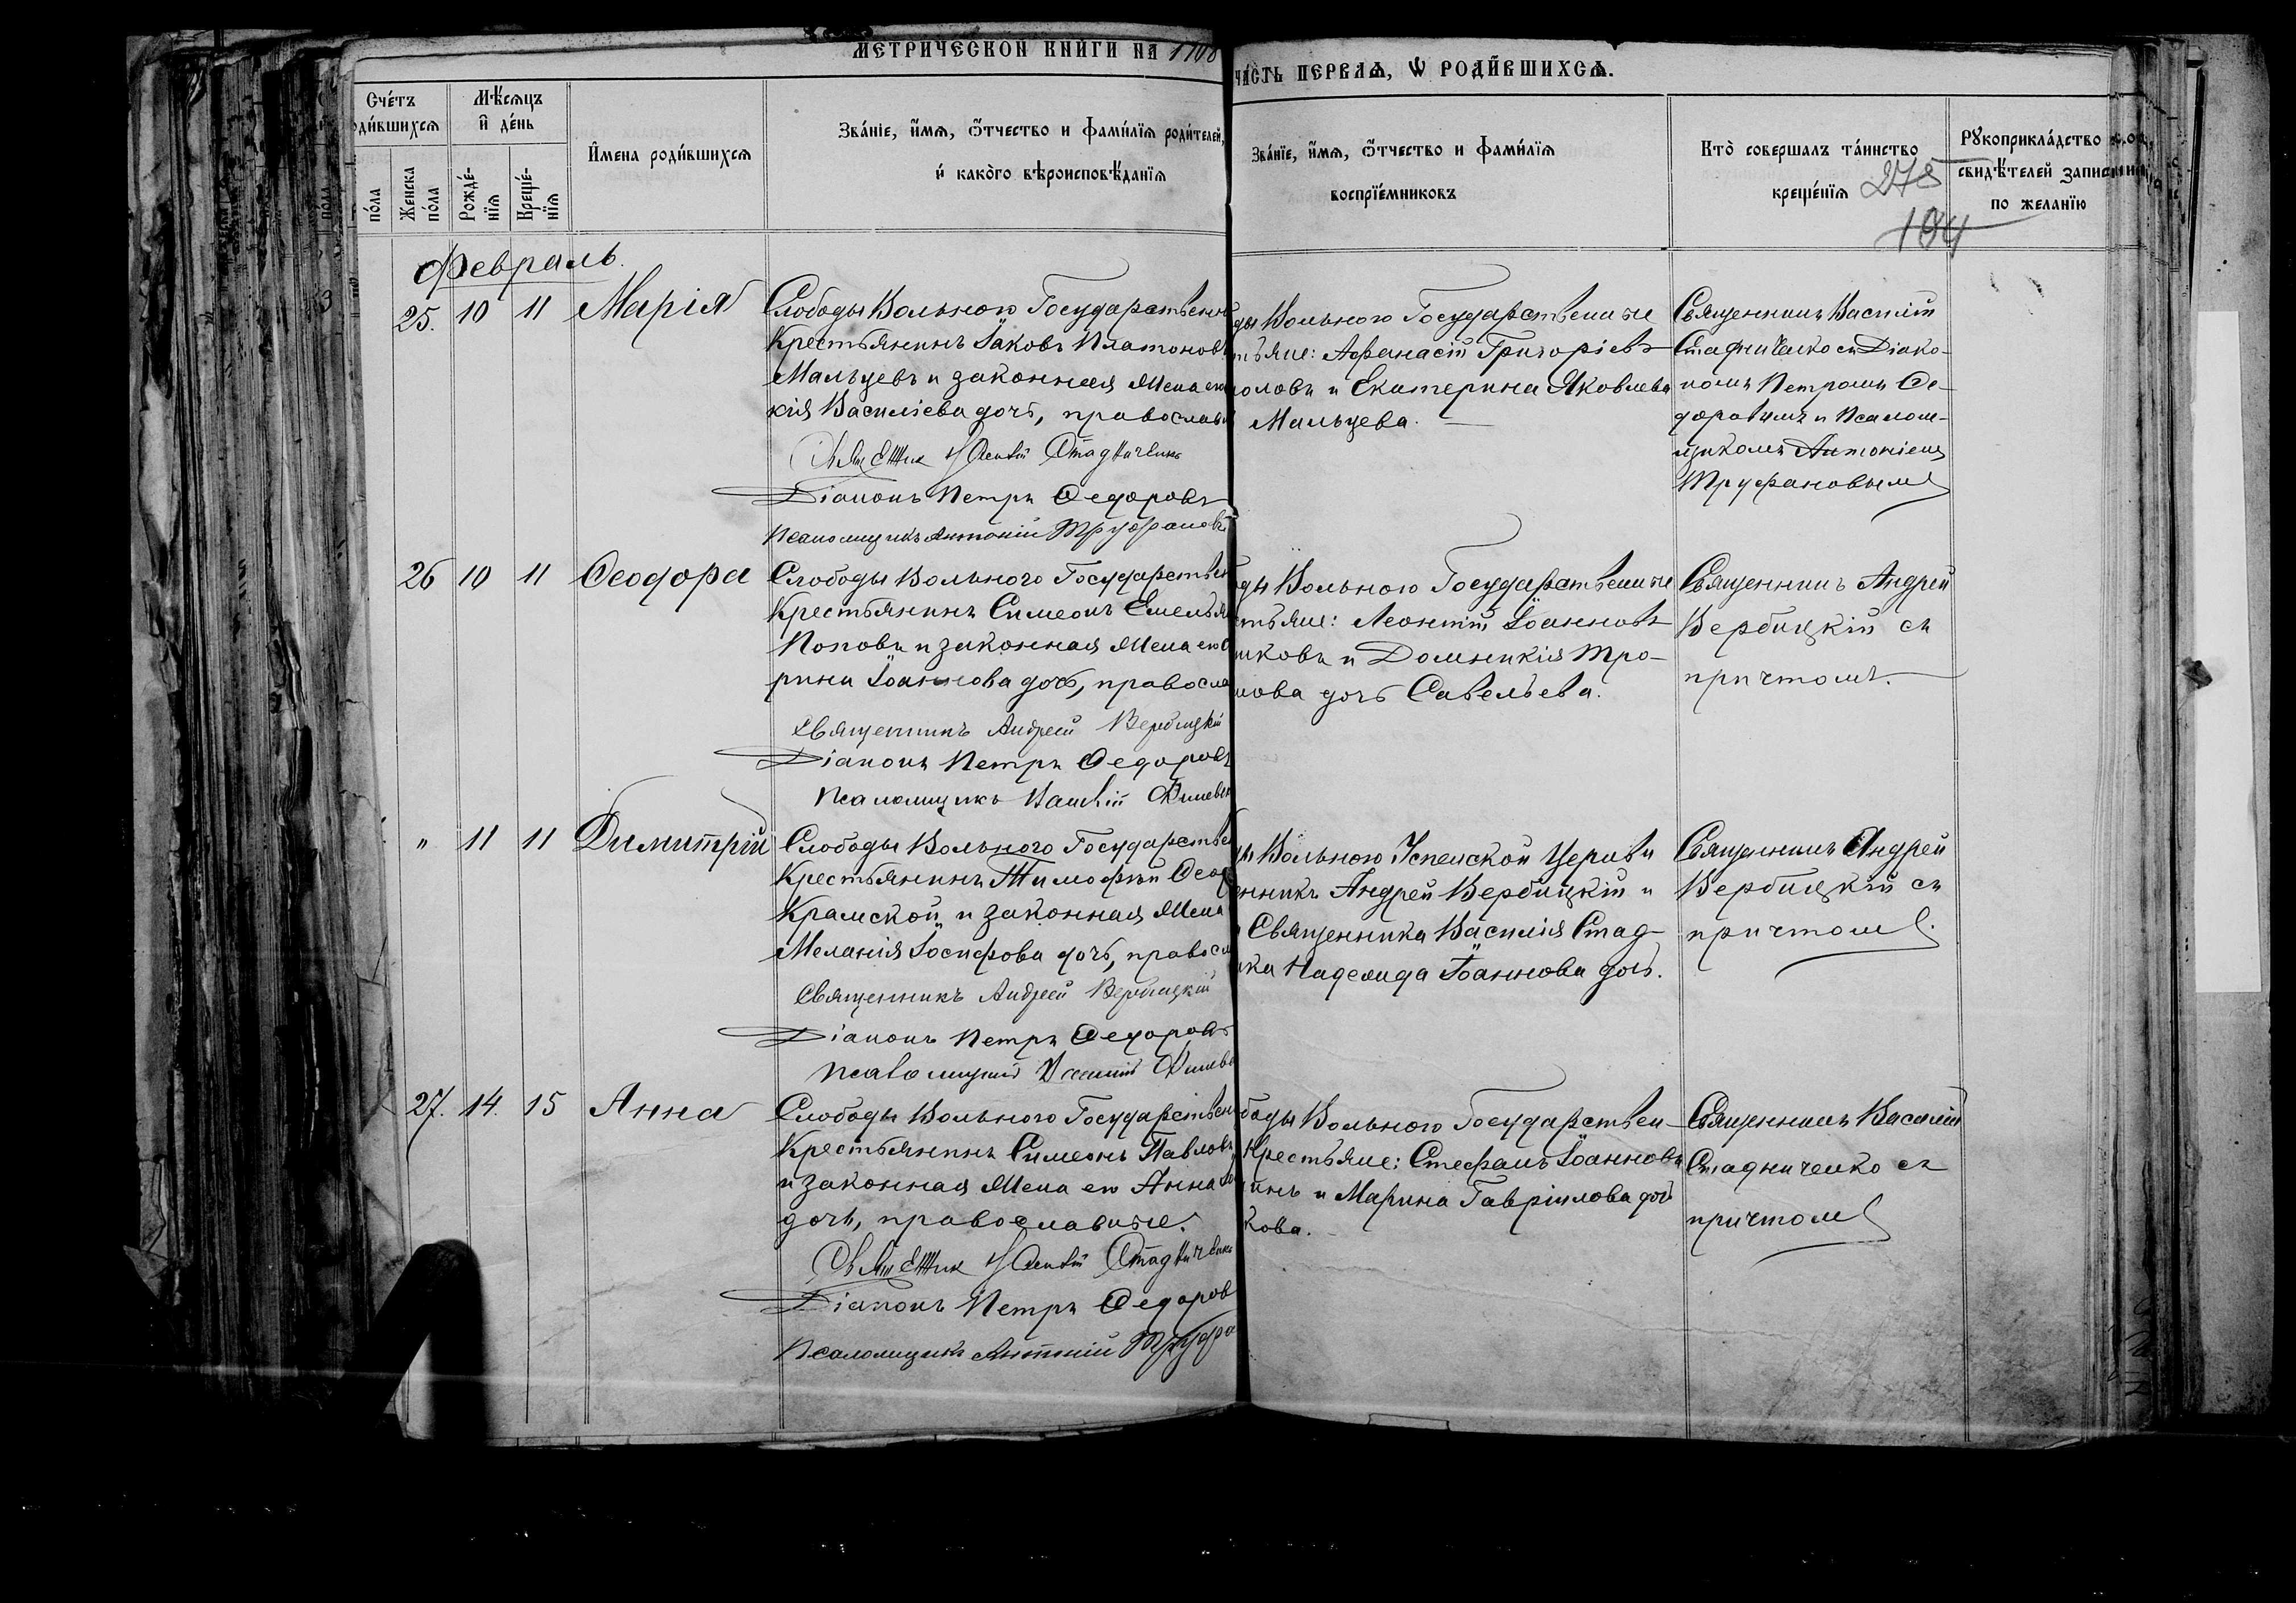 МЕТРИЧЕСКОЙ КНИГИ НА
ЧАСТЬ ПЕРВАЯ, Ѡ РОДИВШИХСЯ.
Счетъ
родившихся
Мѣсяцъ
и день
пола
Женска
пола
Рожде-
нія
Креще-
нія
Имена родившихся
Званіе, имя, отчество и фамилія родителей,
и какого вѣроисповѣданія
Званіе, имя, отчество и фамилія
воспріемниковъ
Кто совершалъ таинство
крещенія
275
194
Рукоприкладство
свидѣтелей записи
по желанію
Февраль.
25. 10 11 Марія
Слободы Вольного Государственн
Крестьянинъ Іаковъ Платоновъ
Мальцевъ и законная жена его
кія Василіева дочь, православн
Священник Василій Стадниченко
Діаконъ Петръ Ѳедоровъ
Псаломщикъ Антоній Труфановъ
ды Вольного Государственные
тьяне: Аѳанасій Григоріевъ
оловъ и Екатерина Яковлева
Мальцева.
Священникъ Василій
Стадниченко съ Діако-
номъ Петромъ Ѳе-
доровымъ и Псалом-
щикомъ Антоніемъ
Труфановымъ
26 10 11 Ѳеодора
Слободы Вольного Государствен
Крестьянинъ Симеонъ Емелья
Поповъ и законная жена его
рина Іоаннова дочь, правосла
Священникъ Андрей Вербицкій
Діаконъ Петръ Ѳедоровъ
Псаломщикъ Василій
ды Вольного Государственные
стьяне: Леонтій Іоанновъ
шковъ и Домникія Тро-
мова дочь Савельева.
Священникъ Андрей
Вербицкій съ
причтомъ.
" 11 11 Димитрій
Слободы Вольного Государствен
Крестьянинъ Тимофѣй Ѳеод
Крамской и законная жена
Меланія Іосифова дочь, правосл
Священникъ Андрей Вербицкій
Діаконъ Петръ Ѳедоровъ
Псаломщикъ Василій
ды Вольного Успенской Церкви
енникъ Андрей Вербицкій и
Священника Василія Стад-
нка Надежда Іоаннова дочь.
Священникъ Андрей
Вербицкій съ
причтомъ.
27. 14. 15 Анна
Слободы Вольного Государствен
Крестьянинъ Симеонъ Павловъ
и законная жена его Анна
дочь, православные.
Священник Василій Стадниченко
Діаконъ Петръ Ѳедоров
Псаломщикъ Антоній Труфа
боды Вольного Государствен-
Крестьяне: Стефанъ Іоанновъ
инъ и Марина Гавріилова дочь
кова.
Священникъ Василій
Стадниченко съ
причтомъ